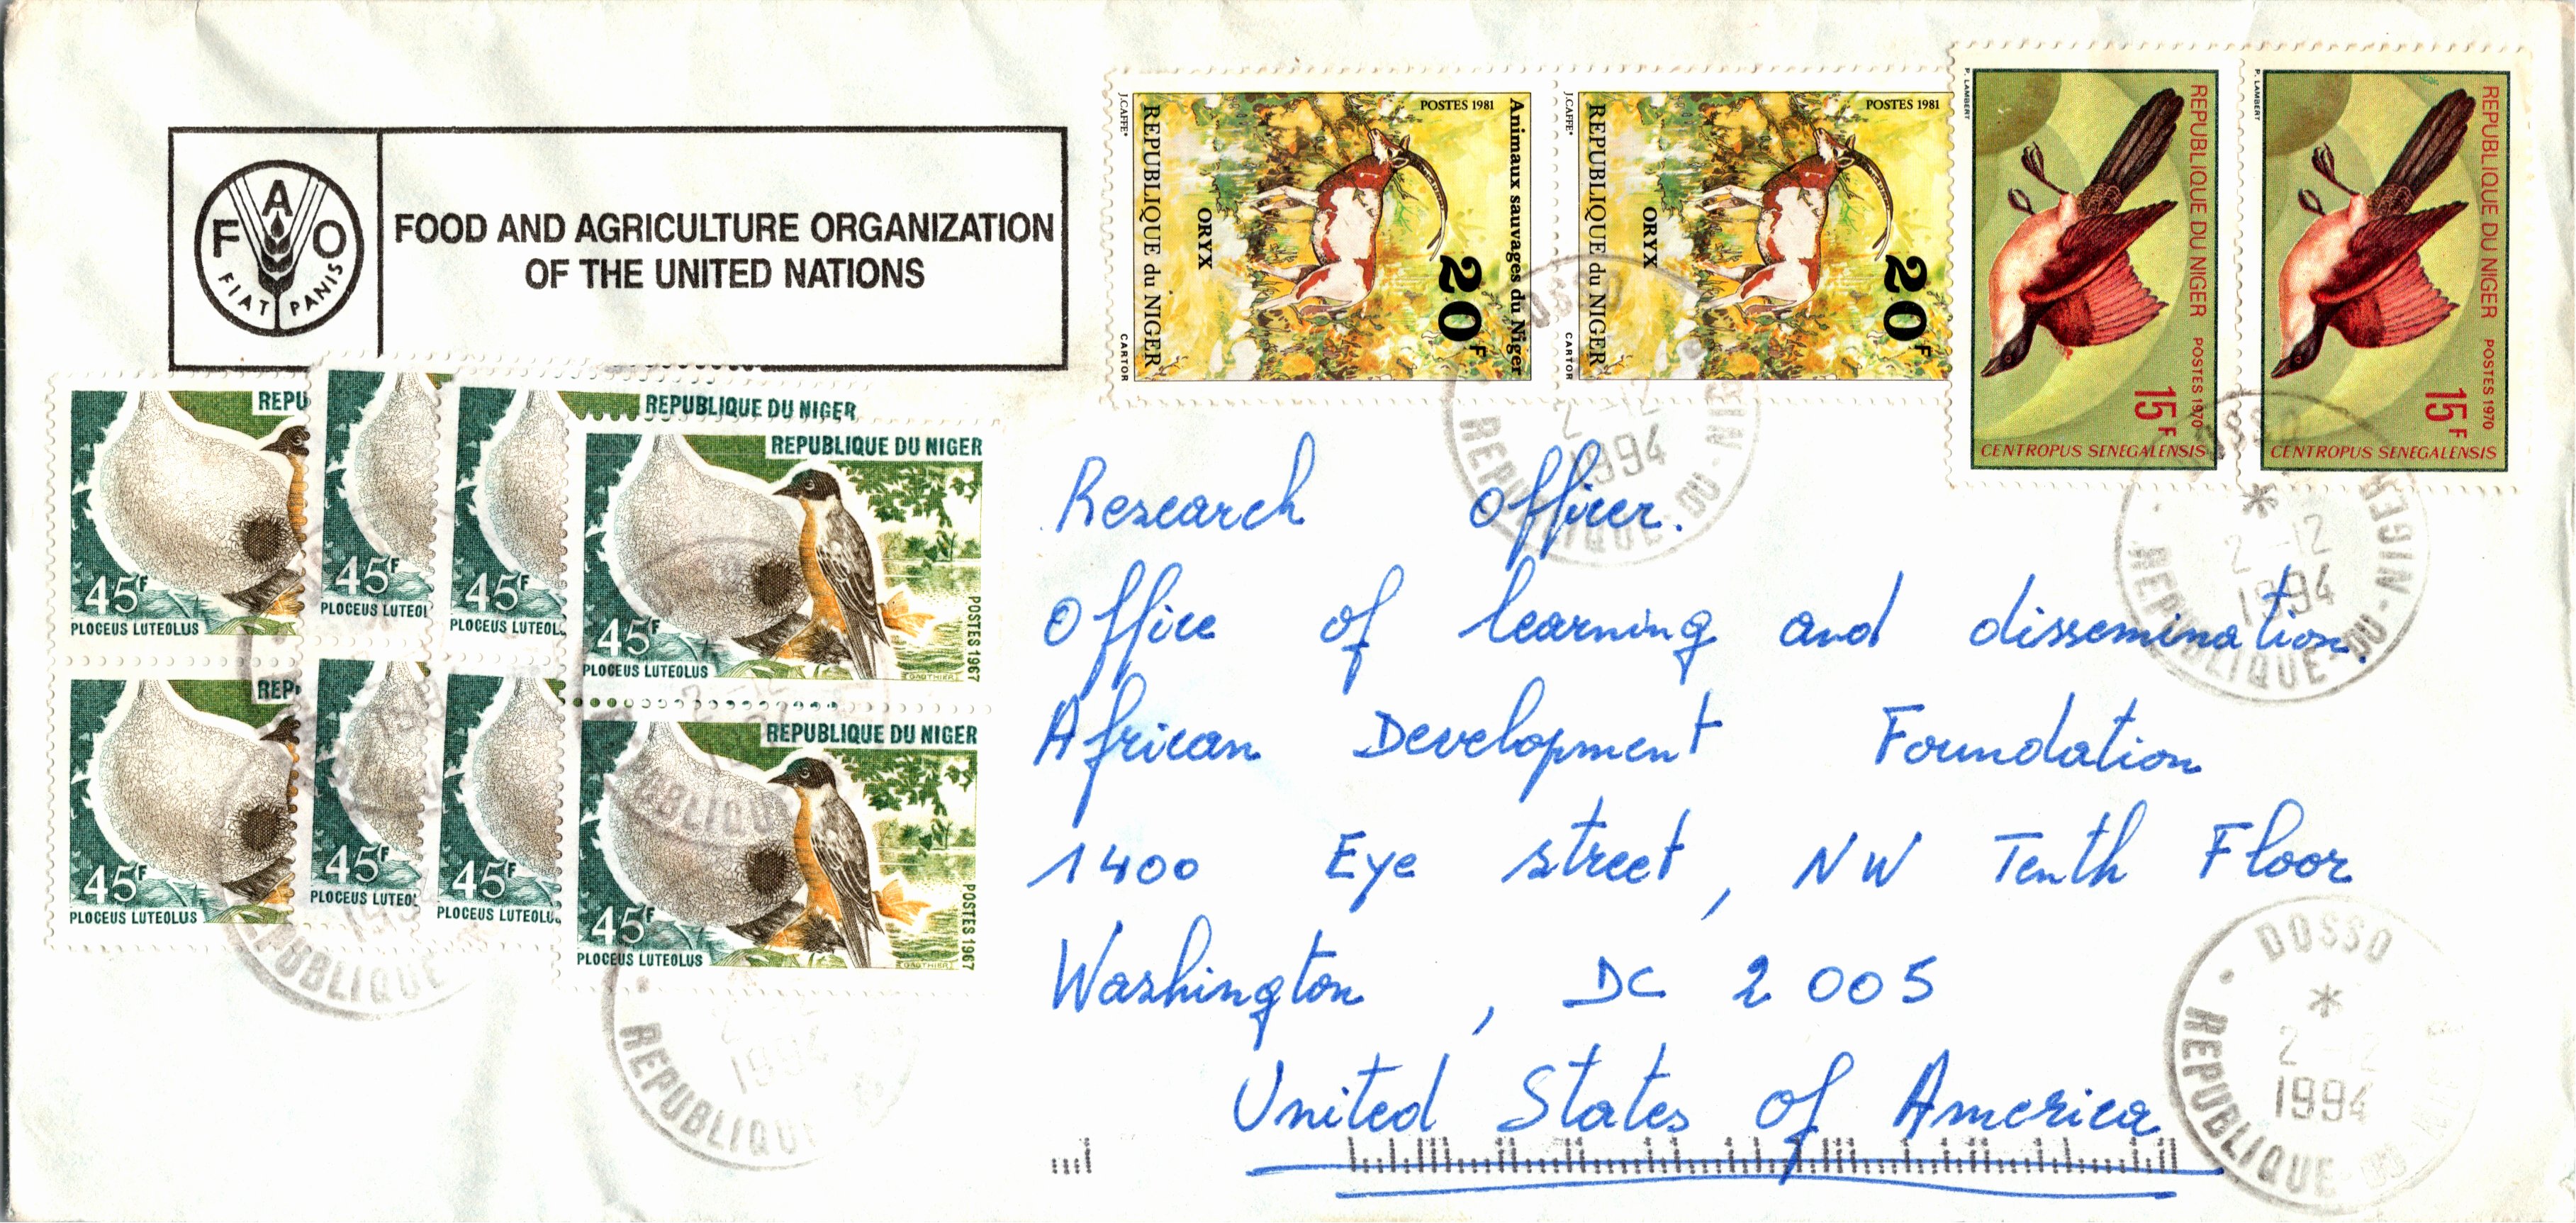 F A O
FIAT PANIS
FOOD AND AGRICULTURE ORGANIZATION
OF THE UNITED NATIONS
POSTES 1981
Animaux sauvages du Niger
20F
ORYX
REPUBLIQUE du NIGER
J.CAFFE
CARTOR
POSTES 1981
20F
ORYX
REPUBLIQUE du NIGER
J.CAFFE
CARTOR
P. LAMBERT
REPUBLIQUE DU NIGER POSTES 1970
15F
CENTROPUS SENEGALENSIS
P. LAMBERT
REPUBLIQUE DU NIGER POSTES 1970
15F
CENTROPUS SENEGALENSIS
REPU
45F
PLOCEUS LUTEOLUS
45F
PLOCEUS LUTEOL
REPUBLIQUE DU NIGER
45F
PLOCEUS LUTEOL
REPUBLIQUE DU NIGER
45F
PLOCEUS LUTEOLUS
POSTES 1967
GAUTHIER
REP
45F
PLOCEUS LUTEOLUS
45F
PLOCEUS LUTEO
45F
PLOCEUS LUTEOLU
REPUBLIQUE DU NIGER
45F
PLOCEUS LUTEOLUS
POSTES 1967
GAUTHIER
DOSSO
2-12
1994
REPUBLIQUE-DU-NI
OSSO
2-12
1994
REPUBLIQUE-DU-NIGER
Research Officer.
Office of learning and dissemination.
African Development Foundation
1400 Eye street, NW Tenth Floor
Washington, DC 2005
United States of America
REPUBLIQUE
1994
REPUBLIQU
DOSSO
2-12
1994
REPUBLIQUE-DU